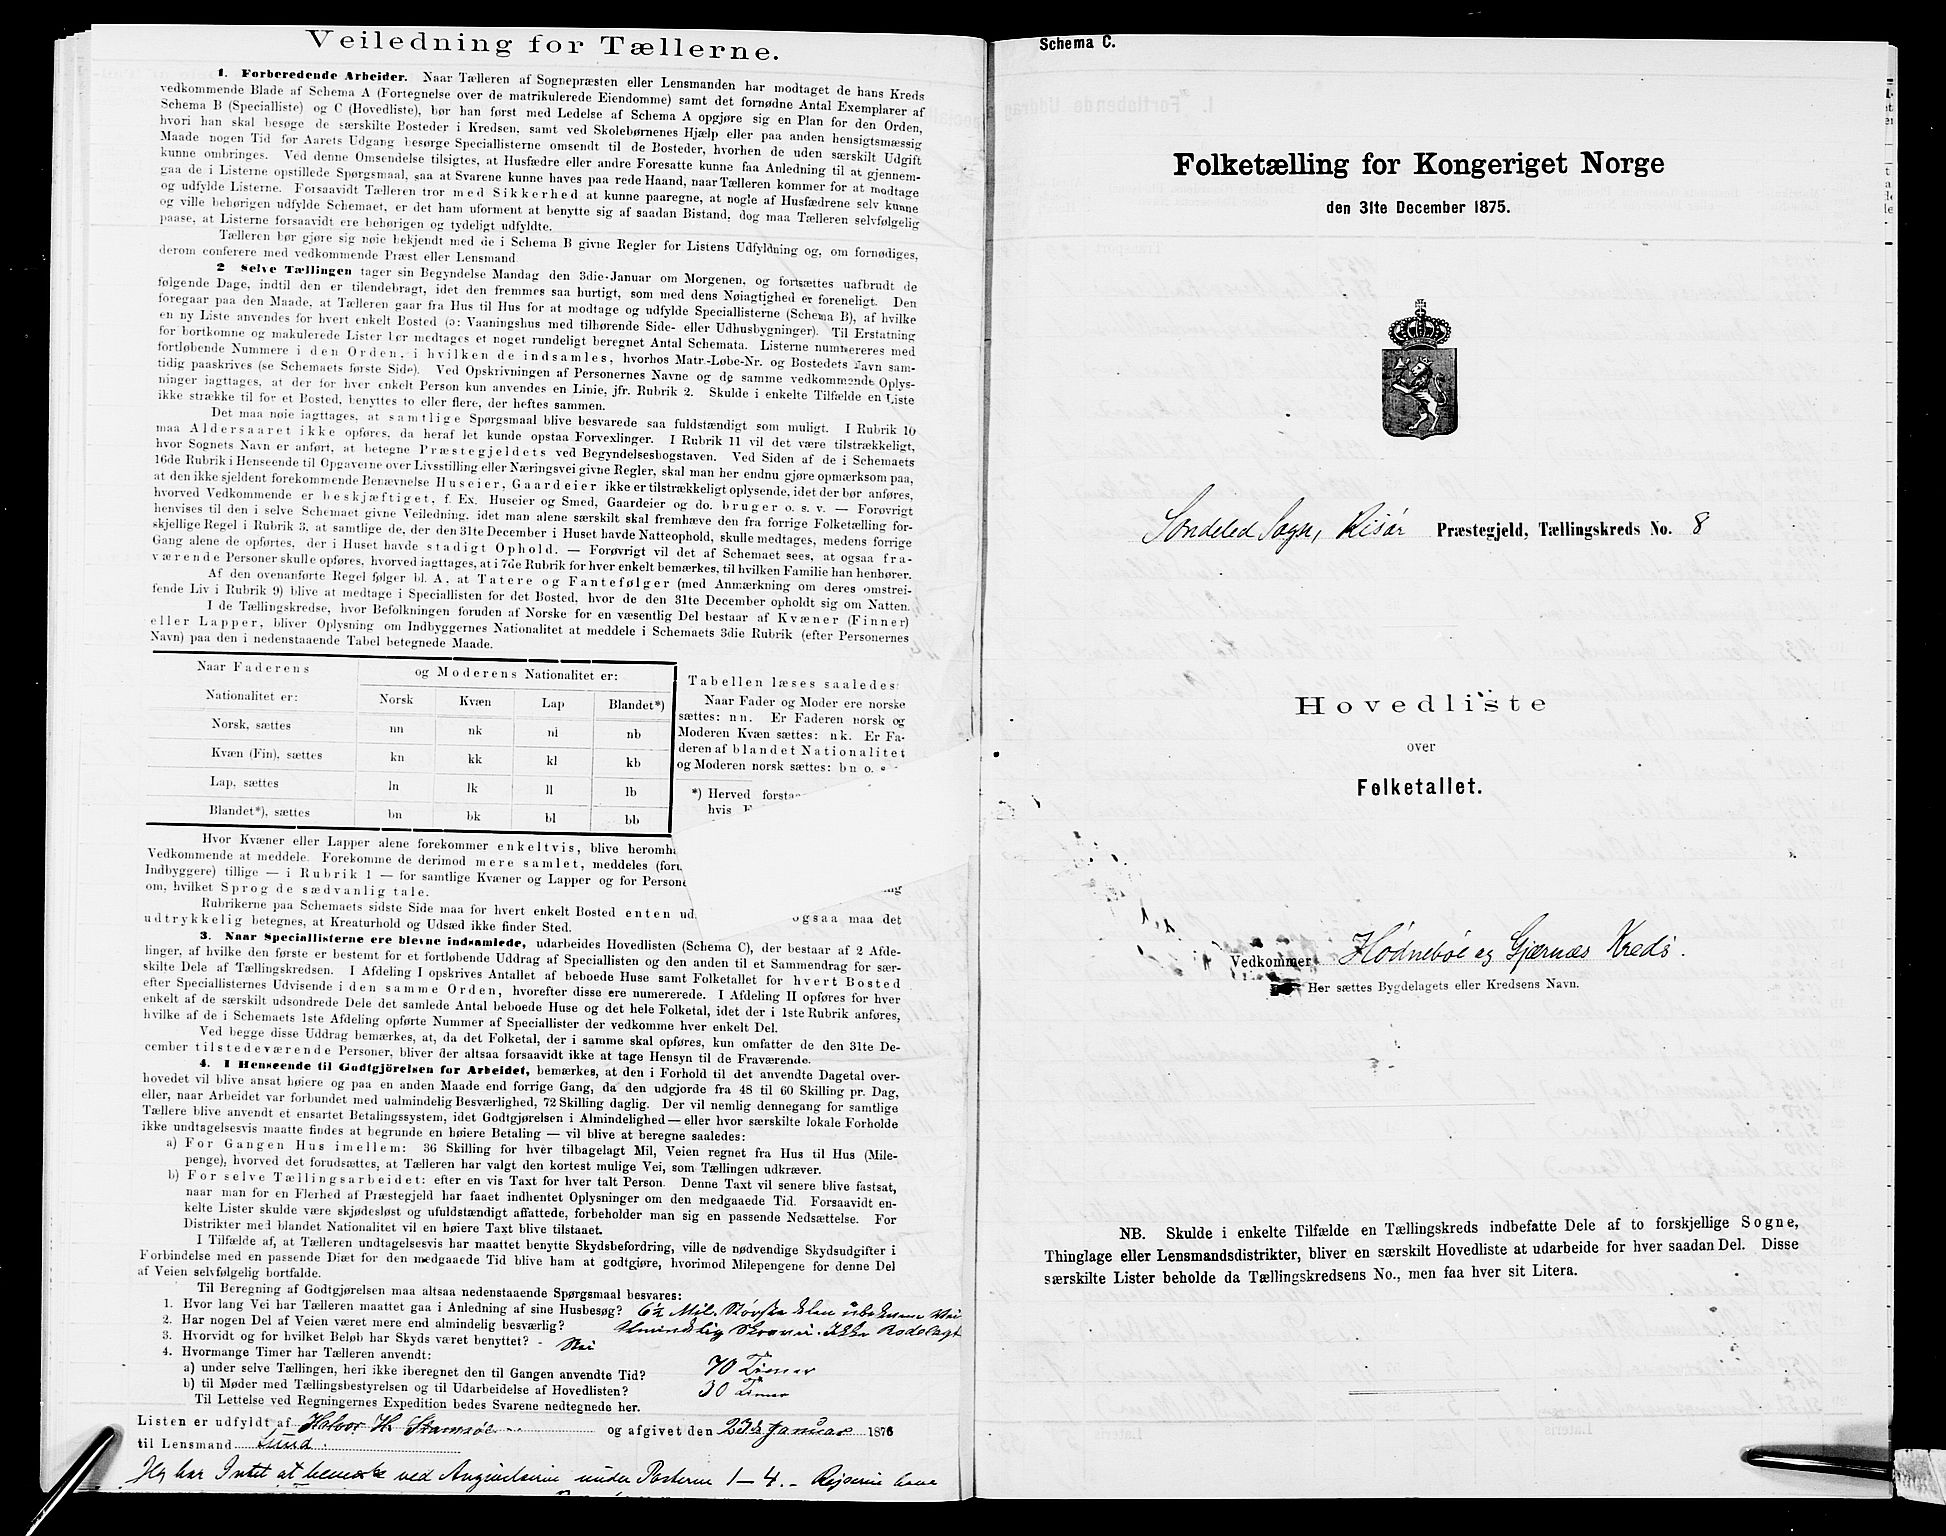 Veiledning for Tællerne.
1. Forberedende Arbeider. Naar Tælleren af Sognepræsten eller Lensmanden har modtaget de hans Kreds
vedkommende Blade af Schema A (Fortegnelse over de matrikulerede Eiendomme) samt det fornødne Antal Exemplarer af
Schema B (Specialliste) og C (Hovedliste), bør han først med Ledelse af Schema A opgjøre sig en Plan for den Orden,
hvori han skal besøge de særskilte Bosteder i Kredsen, samt ved Skolebørnenes Hjælp eller paa anden hensigtsmæssig
Maade nogen Tid før Aarets Udgang besørge Speciallisterne omsendt til de Bosteder, hvorhen de uden særskilt Udgift
kunne ombringes. Ved denne Omsendelse tilsigtes, at Husfædre eller andre Foresatte kunne faa Anledning til at gjennem-
gaa de i Listerne opstillede Spørgsmaal, saa at Svarene kunne haves paa rede Haand, naar Tælleren kommer for at modtage
og udfylde Listerne. Forsaavidt Tælleren tror med Sikkerhed at kunne paaregne, at nogle af Husfædrene selv kunne
og ville behørigen udfylde Schemaet, er det ham uforment at benytte sig af saadan Bistand, dog maa Tælleren selvfølgelig
paase, at Listerne forsaavidt ere behørigen og tydeligt udfyldte.
Tælleren bør gjøre sig nøie bekjendt med de i Schema B givne Regler for Listens Udfyldning og, om fornødiges,
derom conferere med vedkommende Præst eller Lensmand
2 Selve Tællingen tager sin Begyndelse Mandag den 3die Januar om Morgenen, og fortsættes uafbrudt de
følgende Dage, indtil den er tilendebragt, idet den fremmes saa hurtigt, som med dens Nøiagtighed er foreneligt. Den
foregaar paa den Maade, at Tælleren gaar fra Hus til Hus for at modtage og udfylde Speciallisterne (Schema B), af hvilke
en ny Liste anvendes for hvert enkelt Bosted (ɔ: Vaaningshus med tilhørende Side- eller Udhusbygninger). Til Erstatning
for bortkomne og makulerede Lister bør medtages et noget rundeligt beregnet Antal Schemata. Listerne nummereres med
fortløbende Nummere i den Orden, i hvilken de indsamles, hvorhos Matr.-Løbe-Nr. og Bostedets Navn sam-
tidig paaskrives (se Schemaets første Side). Ved Opskrivningen af Personernes Navne og de samme vedkommende Oplys-
ninger iagttages, at der for hver enkelt Person kun anvendes en Linie, jfr. Rubrik 2. Skulde i enkelte Tilfælde en Liste
ikke strække til for et Bosted, benyttes to eller flere, der heftes sammen.
Det maa nøie iagttages, at samtlige Spørgsmaal blive besvarede saa fuldstændigt som muligt. I Rubrik 10
maa Aldersaaret ikke opføres, da heraf let kunde opstaa Forvexlinger. I Rubrik 11 vil det være tilstrækkeligt,
hvor Sognets Navn er anført, at betegne Præstegjeldets ved Begyndelsesbogstaven. Ved Siden af de i Schemaets
16de Rubrik i Henseende til Opgaverne over Livsstilling eller Næringsvei givne Regler, skal man her endnu gjøre opmærksom paa,
at den ikke sjeldent forekommende Benævnelse Huseier, Gaardeier ikke er tilstrækkeligt oplysende, idet der bør anføres,
hvorved Vedkommende er beskjæftiget, f. Ex. Huseier og Smed, Gaardeier og do. bruger o. s. v. — Forøvrigt
henvises til den i selve Schemaet givne Veiledning, idet man alene særskilt skal fremhæve den fra forrige Folketælling for-
skjellige Regel i Rubrik 3, at samtlige de, der den 31te December i Huset havde Natteophold, skulle medtages, medens forrige
Gang alene de opførtes, der i Huset havde stadigt Ophold. — Forøvrigt vil det af Schemaet sees, at ogsaa fra-
værende Personer skulle opføres, hvorved iagttages, at i 7de Rubrik for hver enkelt bemærkes, til hvilken Familie han henhører.
Af den ovenanførte Regel følger bl. A, at Tatere og Fantefølger (med Anmærkning om deres omstrei-
fende Liv i Rubrik 9) blive at medtage i Speciallisten for det Bosted, hvor de den 31te December opholdt sig om Natten.
I de Tællingskredse, hvor Befolkningen foruden af Norske for en væsentlig Del bestaar af Kvæner (Finner)
eller Lapper, bliver Oplysning om Indbyggernes Nationalitet at meddele i Schemaets 3die Rubrik (efter Personernes
Navn) paa den i nedenstaaende Tabel betegnede Maade.
Naar Faderens og Moderens Nationalitet er:
Nationalitet er: Norsk Kvæn Lap Blandet*)
Norsk, sættes nn nk nl nb
Kvæn (Fin), sættes kn kk kl kb
Lap, sættes ln lk ll lb
Blandet*), sættes bn bk bl bb
Tabellen læses saaledes:
Naar Fader og Moder ere norske
sættes: nn. Er Faderen norsk og
Moderen Kvæn sættes: nk. Er Fa-
deren af blandet Nationalitet
og Moderen norsk sættes: bn o.
*) Herved forstaa
hvis
Hvor Kvæner eller Lapper alene forekommer enkeltvis, blive heromh
Vedkommende at meddele. Forekomme de derimod mere samlet, meddeles (foru
Indbyggere) tillige — i Rubrik 1 — for samtlige Kvæner og Lapper og for Persone
om, hvilket Sprog de sædvanlig tale.
Rubrikerne paa Schemaets sidste Side maa for hvert enkelt Bosted enten ud ogsaa maa det
udtrykkelig betegnes, at Kreaturhold og Udsæd ikke finder Sted.
3. Naar Speciallisterne ere blevne indsamlede, udarbeides Hovedlisten (Schema C), der bestaar af 2 Afde-
linger, af hvilke den første er bestemt for et fortløbende Uddrag af Speciallisten og den anden til et Sammendrag for sær-
skilte Dele af Tællingskredsen. I Afdeling I opskrives Antallet af beboede Huse samt Folketallet for hvert Bosted
efter Speciallisternes Udvisende i den samme Orden, hvorefter disse ere numererede. I Afdeling II opføres for hver
enkelt af de særskilt udsondrede Dele det samlede Antal beboede Huse og det hele Folketal, idet der i 1ste Rubrik anføres,
hvilke af de i Schemaets 1ste Afdeling opførte Nummer af Speciallister der vedkomme hver enkelt Del.
Ved begge disse Uddrag bemærkes, at, da det Folketal, der i samme skal opføres, kun omfatter de den 31te De-
cember tilstedeværende Personer, bliver der altsaa forsaavidt ikke at tage Hensyn til de Fraværende.
4. I Henseende til Godtgjörelsen for Arbeidet, bemærkes, at den i Forhold til det anvendte Dagetal over-
hovedet vil blive ansat høiere og paa en anden Maade end forrige Gang, da den udgjorde fra 48 til 60 Skilling pr. Dag,
eller, naar Arbeidet var forbundet med ualmindelig Besværlighed, 72 Skilling daglig. Der vil nemlig dennegang for samtlige
Tællere blive anvendt et ensartet Betalingssystem, idet Godtgjørelsen i Almindelighed — eller hvor særskilte lokale Forholde
ikke undtagelsesvis maatte findes at begrunde en høiere Betaling — vil blive at beregne saaledes:
a) For Gangen Hus imellem: 36 Skilling for hver tilbagelagt Mil, Veien regnet fra Hus til Hus (Mile-
penge), hvorved det forudsættes, at Tælleren har valgt den kortest mulige Vei, som Tællingen udkræver.
b) For selve Tællingsarbeidet: efter en vis Taxt for hver talt Person. Denne Taxt vil senere blive fastsat,
naar man for en Flerhed af Præstegjeld har faaet indhentet Oplysninger om den medgaaede Tid. Forsaavidt en-
kelte Lister skulde være skjødesløst og ufuldstændigt affattede, forbeholder man sig en passende Nedsættelse. For
Distrikter med blandet Nationalitet vil en høiere Taxt blive tilstaaet.
I Tilfælde af, at Tælleren undtagelsesvis har maattet benytte Skydsbefordring, ville de nødvendige Skydsudgifter i
Forbindelse med en passende Diæt for den medgaaede Tid blive ham at godtgjøre, hvorimod Milepengene for denne Del
af Veien selvfølgelig bortfalde.
Til Beregning af Godtgjørelsen maa altsaa nedenstaaende Spørgsmaal besvares:
1. Hvor lang Vei har Tælleren maattet gaa i Anledning af sine Husbesøg? 6½ Mil. Største Delen ubekvem Vei
2. Har nogen Del af Veien været mere end almindelig besværlig? Almindelig Skovvei. Ikke Rodelagt
3. Hvorvidt og for hvilket Beløb har Skyds været benyttet? - Nei
4. Hvormange Timer har Tælleren anvendt:
a) under selve Tællingen, heri ikke iberegnet den til Gangen anvendte Tid? 70 Timer
b) til Møder med Tællingsbestyrelsen og til Udarbeidelse af Hovedlisten? 30 Timer
Til Lettelse ved Regningernes Expedition bedes Svarene nedtegnede her.
Listen er udfyldt af Halvor H. Stamsöe og afgivet den 23de Januar 1876
til Lensmand Lund.
Jeg har Intet at bemærke ved Angivelserne under Posterne 1-4. - Rejserne have
Schema C.
Folketælling for Kongeriget Norge
den 31te December 1875.
Söndeled Sogn, Risör Præstegjeld, Tællingskreds No. 8
Hovedliste
over
Folketallet.
Vedkommer Hödneböe og Gjærnæs Kreds.
Her sættes Bygdelagets eller Kredsens Navn.
NB. Skulde i enkelte Tilfælde en Tællingskreds indbefatte Dele af to forskjellige Sogne,
Thinglage eller Lensmandsdistrikter, bliver en særskilt Hovedliste at udarbeide for hver saadan Del. Disse
særskilte Lister beholde da Tællingskredsens No., men faa hver sit Litera.